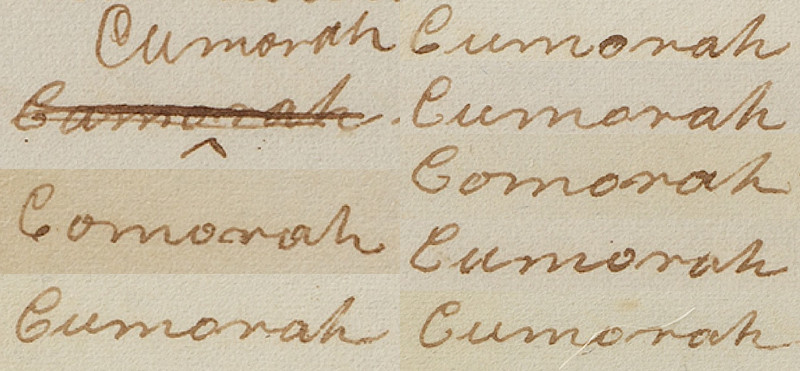 Cumorah
Camorah
^
Comorah
Cumorah
Cumorah
Cumorah
Comorah
Cumorah
Cumorah